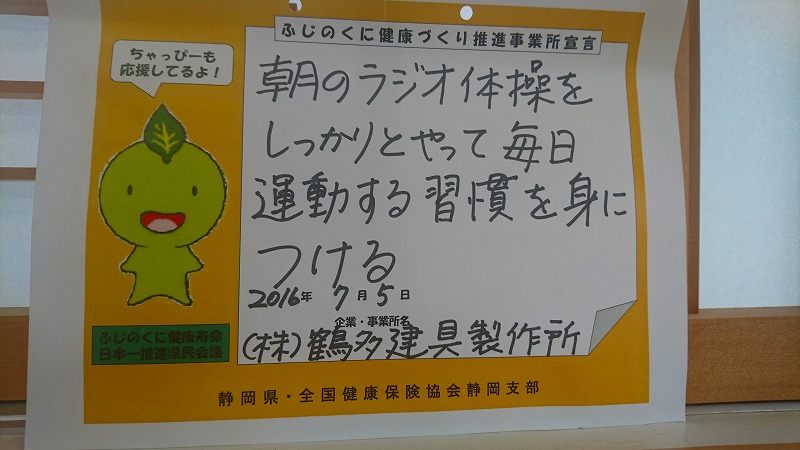 ふじのくに健康づくり推進事業所宣言
ちゃっぴーも
応援してるよ！
朝のラジオ体操を
しっかりとやって毎日
運動する習慣を身に
つける
2016年 7月 5日
企業・事業所名
(株)鶴多建具製作所
ふじのくに健康寿命
日本一推進県民会議
静岡県・全国健康保険協会静岡支部